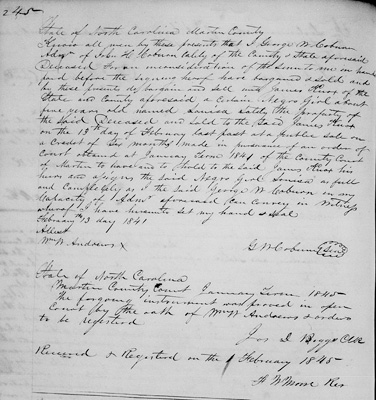 245
State of North Carolina Martin County
Know all men by these presents that I George W. Coburn
Admr of John H. Coburn lately of the County & State aforesaid
Deceased for & in consideration of the sum to me in hand
paid before the signing hereof have bargained & sold and
by these presents do bargain and sell unto James of the
State and County aforesaid a certain Negro Girl about
five years old named lately the property of
the said Deceased and sold to the said James
on the 13th day of February last past at a public sale on
a Credit of Six months made in pursuance of an order of
Court attained at January Term 1841 of the County Court
of Martin to have and to hold to the said James his
heirs and assigns the said Negro Girl as full
and Completely as I the said George W Coburn in my
Capacity of Admr aforesaid Can convey in Witness
whereof I have hereunto set my hand & Seal
February 13 day 1841
Attest
Wm W. Andrews G W Coburn (Seal)
State of North Carolina
Martin County Court January Term 1845
The foregoing instrument was proved in open
Court by the oath of Wm W Andrews & orders
to be registered
Jos D Biggs Clk
Received & Registered on the 1 February 1845
H W Moore Rev